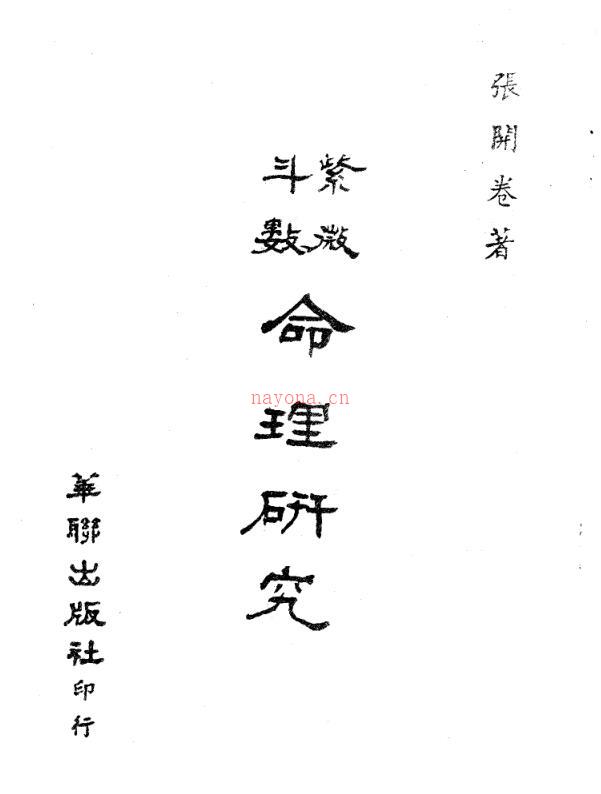 張開卷著
紫微
斗數
命理研究
nayona.cn
華聯出版社印行